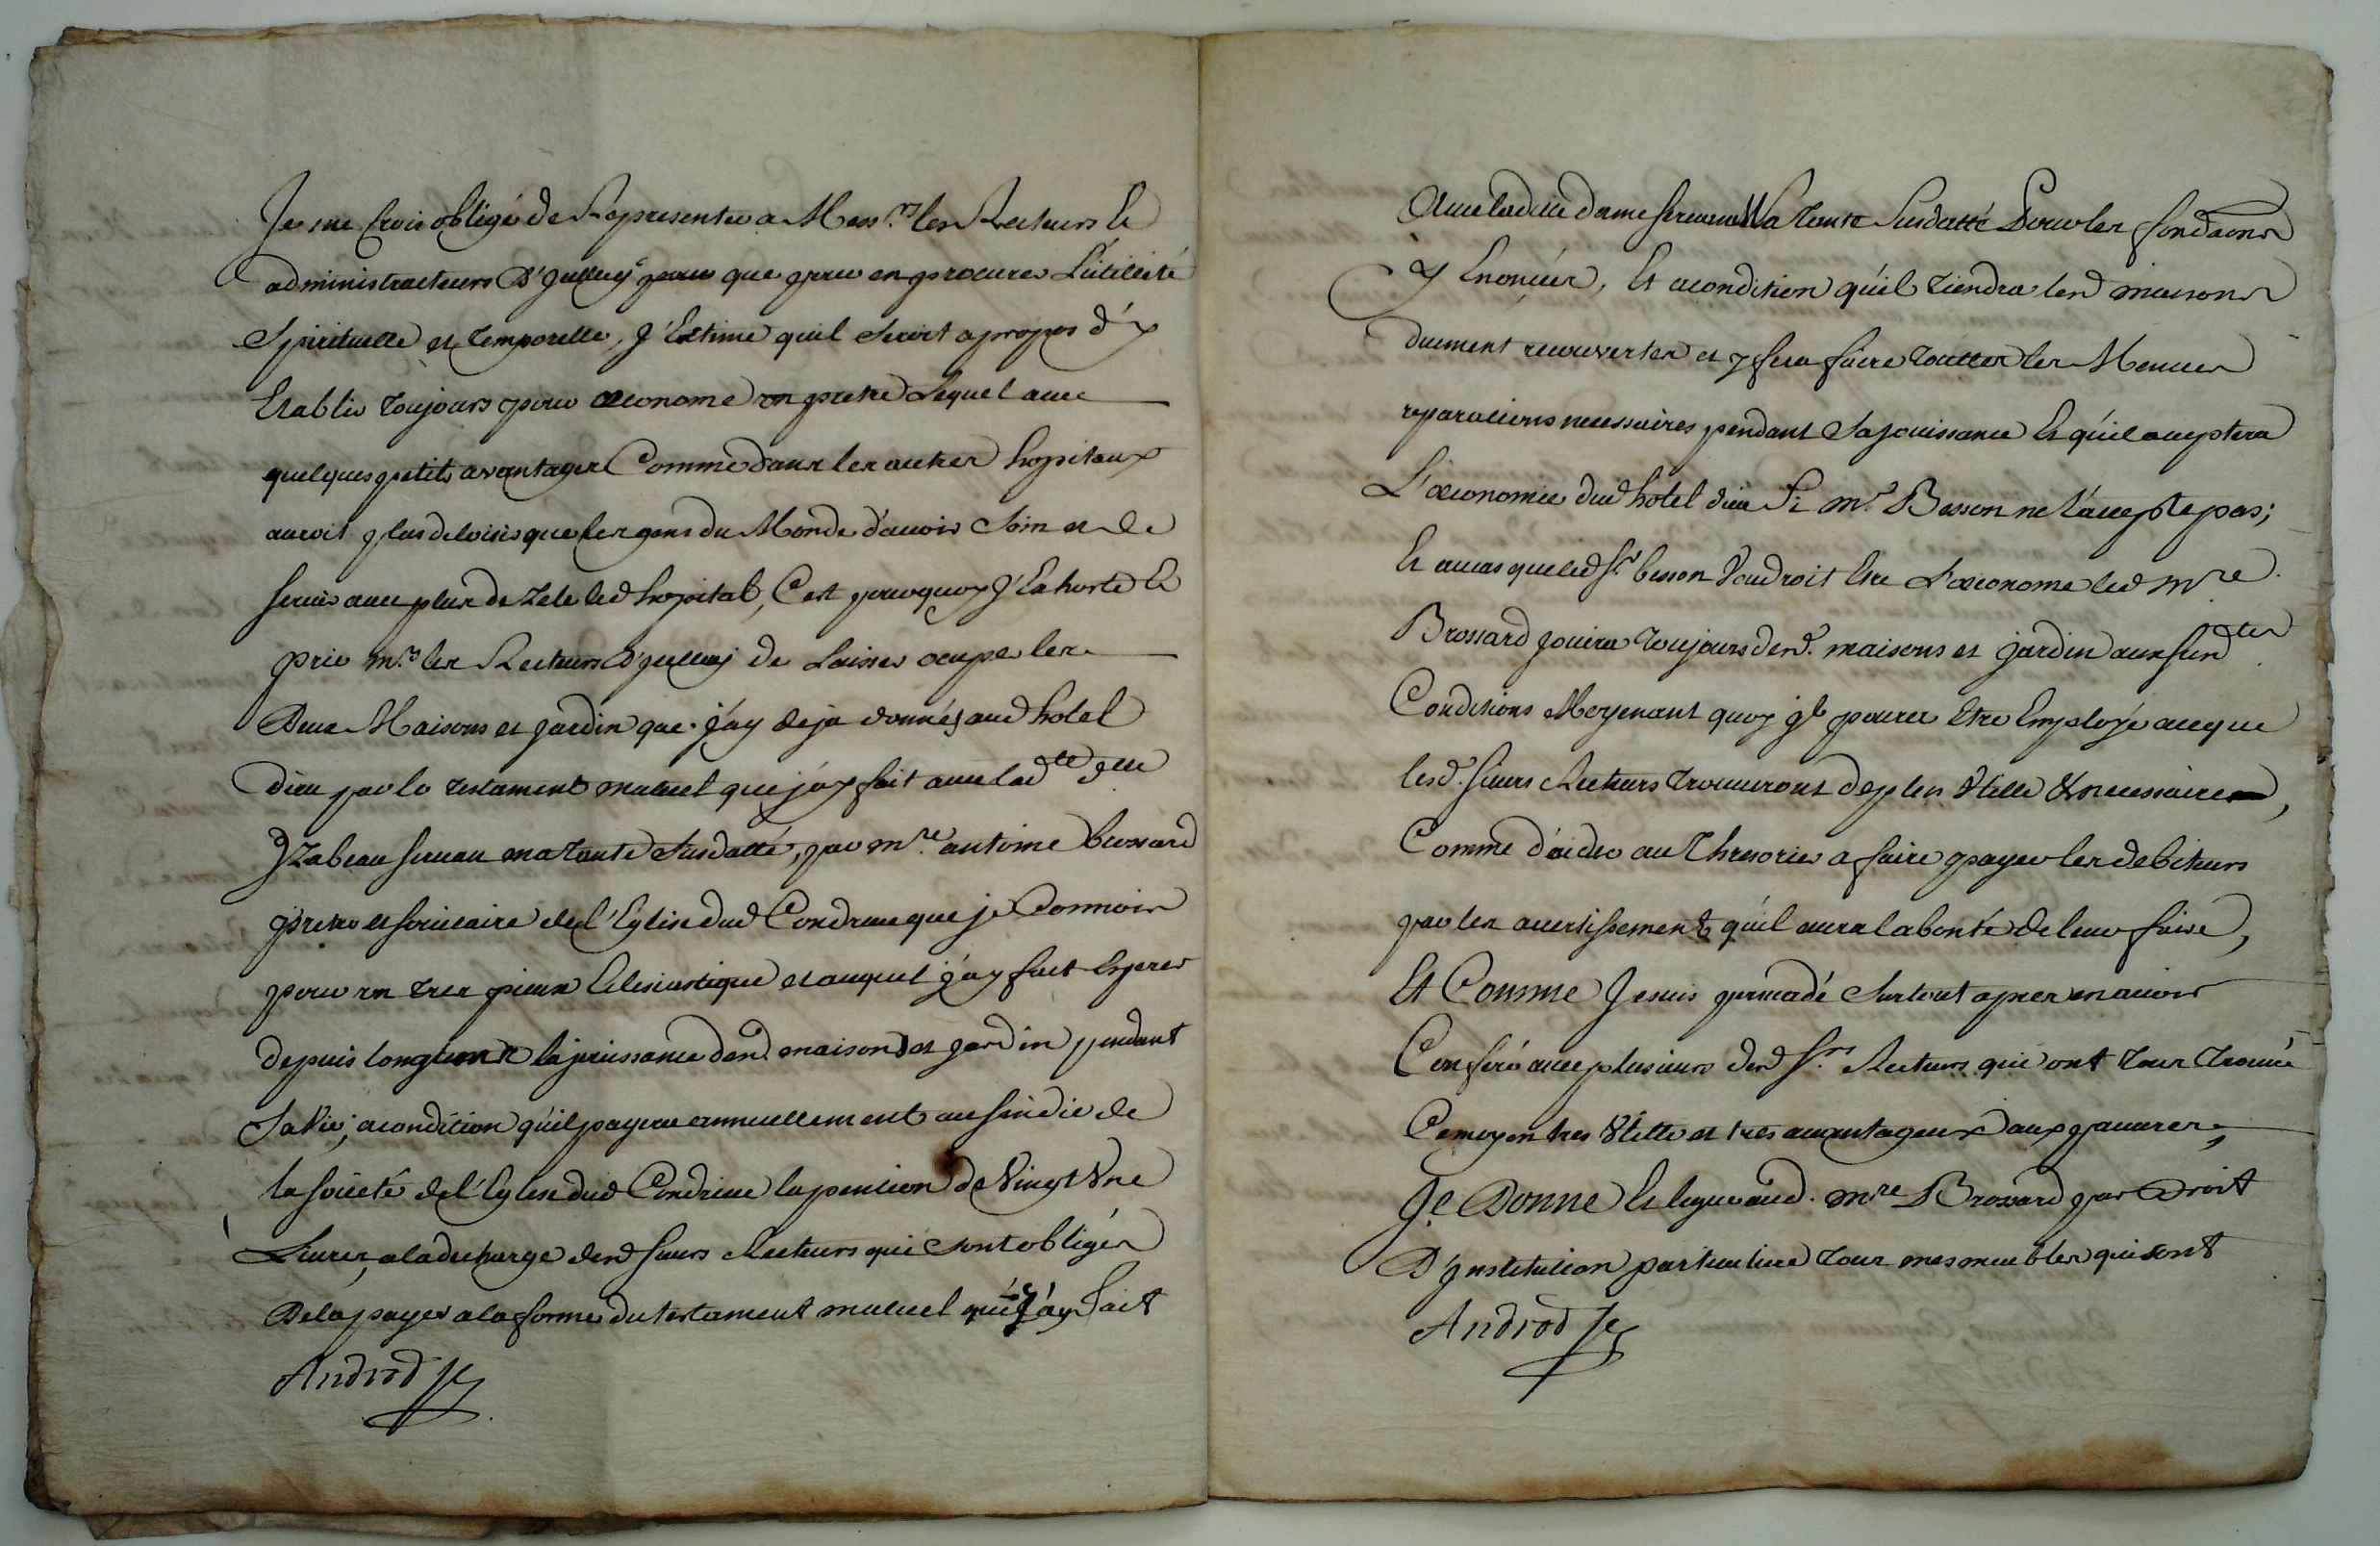 Je me Crois obligé de Representer a Mess.rs les Recteurs et
administracteurs D'Jcelluy pour que pour en procurer L'utillité
Spirituelle et temporelle, J'Estime quil seroit apropos d'y
Etablir toujours pour œconome un pretre Lequel avec
quelques petits avantages Comme dans les autres hopitaux
auroit plus de loisir que les gens du Monde d'avoir Soin et de
servir avec plus de Zele led hopital, C'est pourquoy J'Exhorte et
prie m.rs les Recteurs d'jcelluy de Laisser ocuper les
Deux Maisons et jardin que j'ay deja donnés aud hotel
dieu par le testament mutuel que j'ay fait avec lad.te d.lle
Jzabeau servan ma tante susdatté, par m.re antoine brossard
pretre et societaire de l'Eglise dud Condrieu que je Connois
pour un tres pieux Eclesiastique et auquel j'ay fait Esperer
depuis longtems la jouissance desd. maisons et jardin pendant
Sa Vie; acondition qu'il payera annuellement au sindic de
la societé de l'Eglise dud Condrieu la pension de Vingt Une
Livres, a la decharge desd sieurs Recteurs qui sont obligés
De la payer a la forme du testament mutuel que j'ay fait
Androd
Avec ladite dame servan Ma tante Susdatté Pour les fondaons
y Enoncées, Et acondition qu'il tiendra lesd maisons
duement recouvertes et y fera faire touttes les Menues
reparations necessaires pendant Sa jouissance Et qu'il acceptera
L'œconomie dud hotel dieu Si m.r Besson ne l'accepte pas;
Et au cas que led s.r besson Voudroit Etre L'œconome led m.re
Brossard jouira toujours desd. maisons et jardin aux susd.tes
Conditions Moyenant quoy jl pourra Etre Employé a ce que
lesd. sieurs Recteurs trouveront de plus Utille & necessaire,
Comme d'aider au Thresorier a faire payer les debiteurs
par les avertissements qu'il aura la bonté de leur faire,
Et Comme Je suis persuadé Surtout apres en avoir
Conferé avec plusieurs desd s.rs Recteurs qui ont tous trouvé
Ce moyen tres Utille et tres avantageux aux pauvres;
Je Donne Et legue aud. m.re Brossard par Droit
D'Jnstitution particuliere tous mes meubles qui sont
Androd